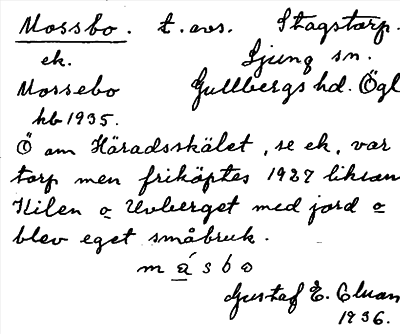 Mossbo. t. avs. Stagstorp.
ek. Ljung sn.
Mossebo Gullbergs hd. Ögl
hb 1935.
Ö om Häradsskälet, se ek, var
torp men friköptes 1927 liksom
Kilen o Uvberget med jord o
blev eget småbruk.
m ǻ s b o
Gustaf E.
1936.